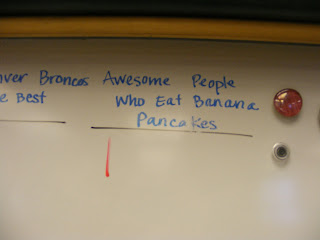 Broncos
Best
Awesome People
Who Eat Banana
Pancakes